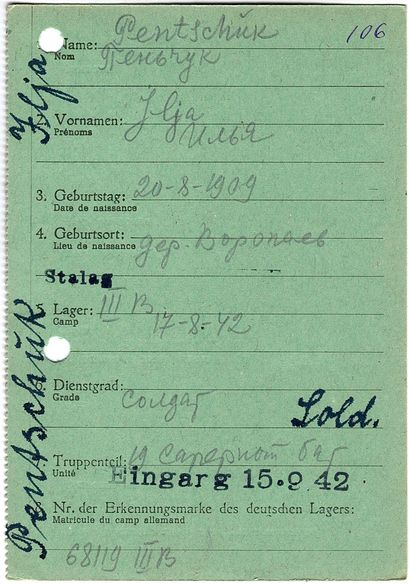 106
1. Name: Pentschuk
Nom Пеньчук
2. Vornamen: Ilja
Prénoms Илья
3. Geburtstag: 20-8-1909
Date de naissance
4. Geburtsort: дер. Воропаев
Lieu de naissance
Stalag
5. Lager: III B
Camp 17-8-42
6. Dienstgrad:
Grade солдат
Sold.
Truppenteil: 19 саперной бат
Unité Eingarg 15.9 42
Nr. der Erkennungsmarke des deutschen Lagers:
Matricule du camp allemand
68119 III B
Pentschuk Ilja